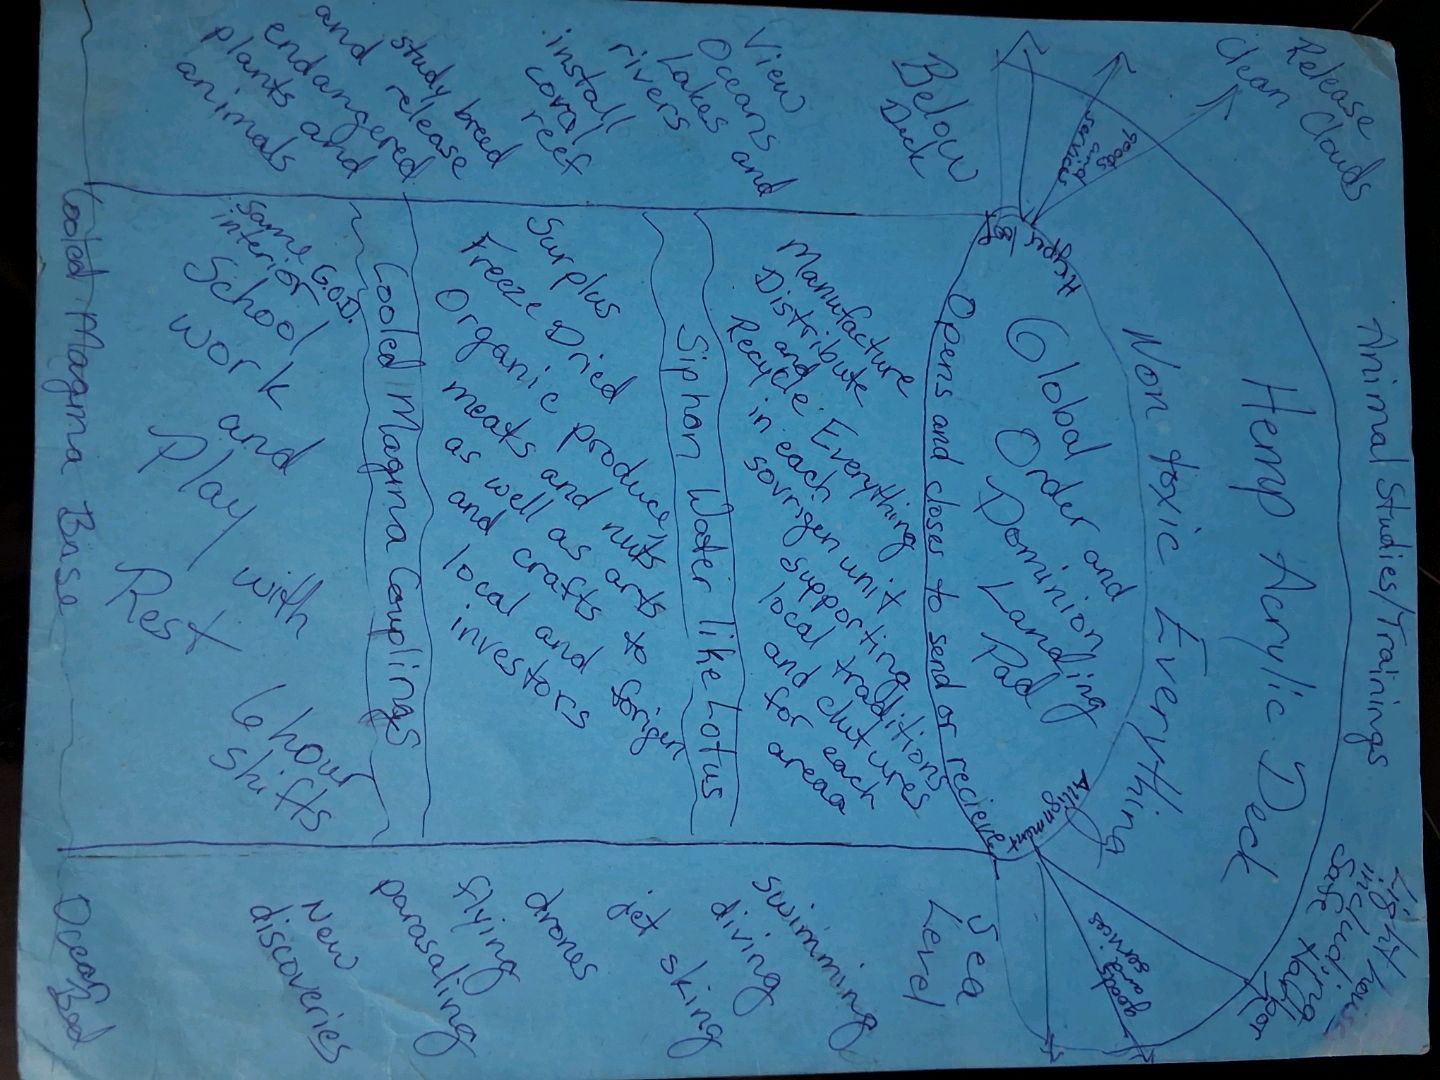 Release
Clean Clouds
Animal Studies/Trainings
Light house
including
safe travel
for
Hemp Acrylic Deck
goods
and
services
goods
and
services
Non toxic Everything
Hyper
Allignment
Global
Order and
Dominion
Landing
Pad
Opens and closes to send or recieve
Below
Deck
Sea
Level
View
Oceans
Lakes and
rivers
install
coral
reef
study breed
and release
endangered
plants and
animals
Manufacture
Distribute
and
Recycle Everything
in each
sovrigen unit
supporting
local traditions
and clutures
for each
areaa
Siphon Water like Lotus
Surplus
Freeze Dried
Organic produce,
meats and nuts
as well as arts
and crafts to
local and forign
investors
Cooled Magma Couplings
same G.O.D.
interior
School
work
and
Play with
Rest
6 hour
shifts
swimming
diving
jet sking
drones
flying
parasaling
New
discoveries
Cooled Magma Base
Ocean
Bed